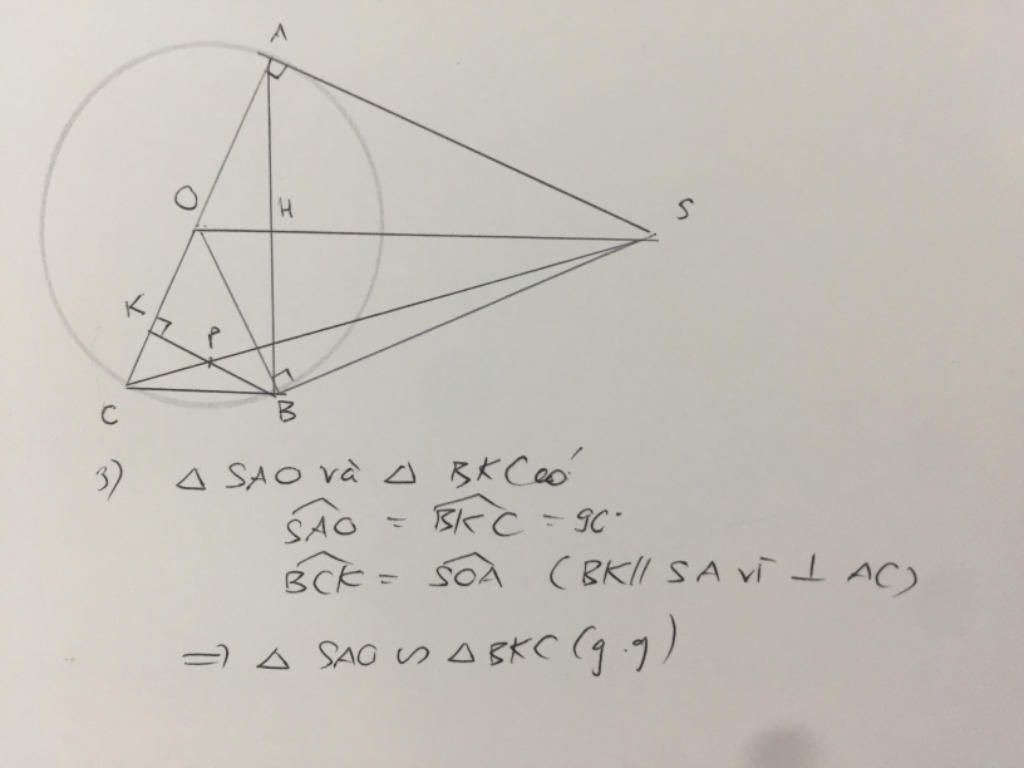 A
O
H
S
K
P
C
B
3) △ SAO và △ BKC có
SAO = BKC = 90°
BCK = SOA (BK // SA vì ⊥ AC)
=> △ SAO ∽ △ BKC (g.g)